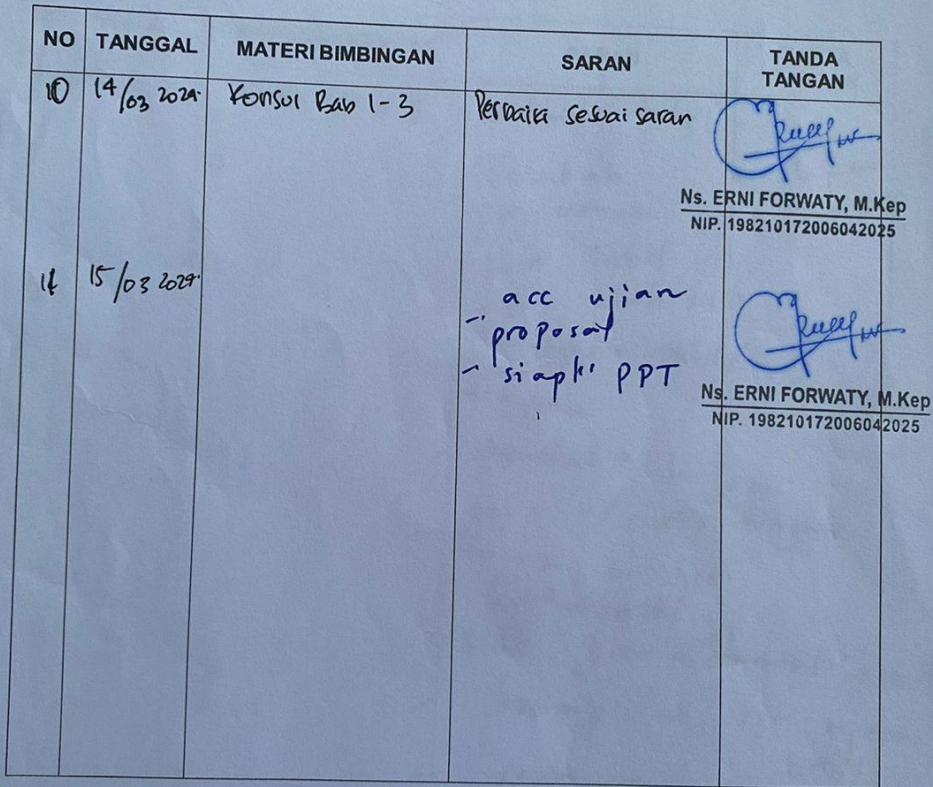 NO TANGGAL MATERI BIMBINGAN SARAN TANDA TANGAN
10 14/03 2024 Konsul Bab 1-3 Perbaiki sesuai saran
Ns. ERNI FORWATY, M.Kep
NIP. 198210172006042025
11 15/03 2024
- acc ujian
proposal
- siapk' PPT
Ns. ERNI FORWATY, M.Kep
NIP. 198210172006042025